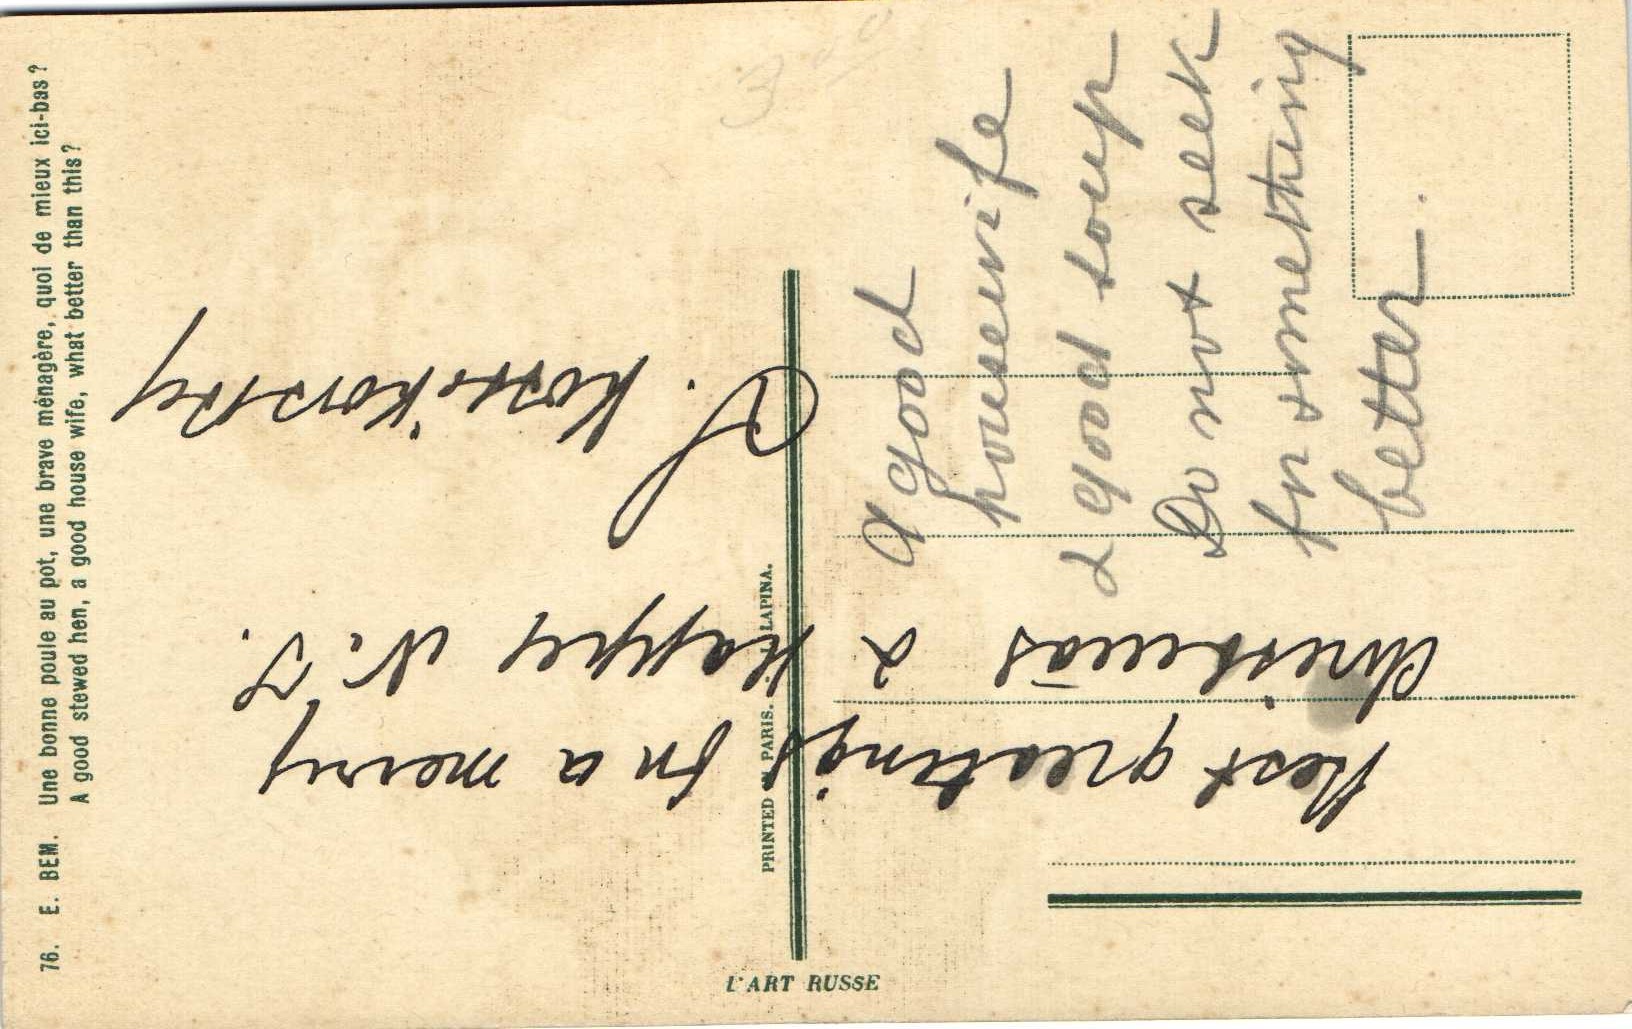 76. E. BEM. Une bonne poule au pot, une brave ménagère, quoi de mieux ici-bas?
A good stewed hen, a good house wife, what better than this?
PRINTED IN PARIS. I. LAPINA.
L'ART RUSSE
A good
housewife
& good soup
Do not seek
for something
better.
Best greatings for a merry
Christmas & Happy N. Y.